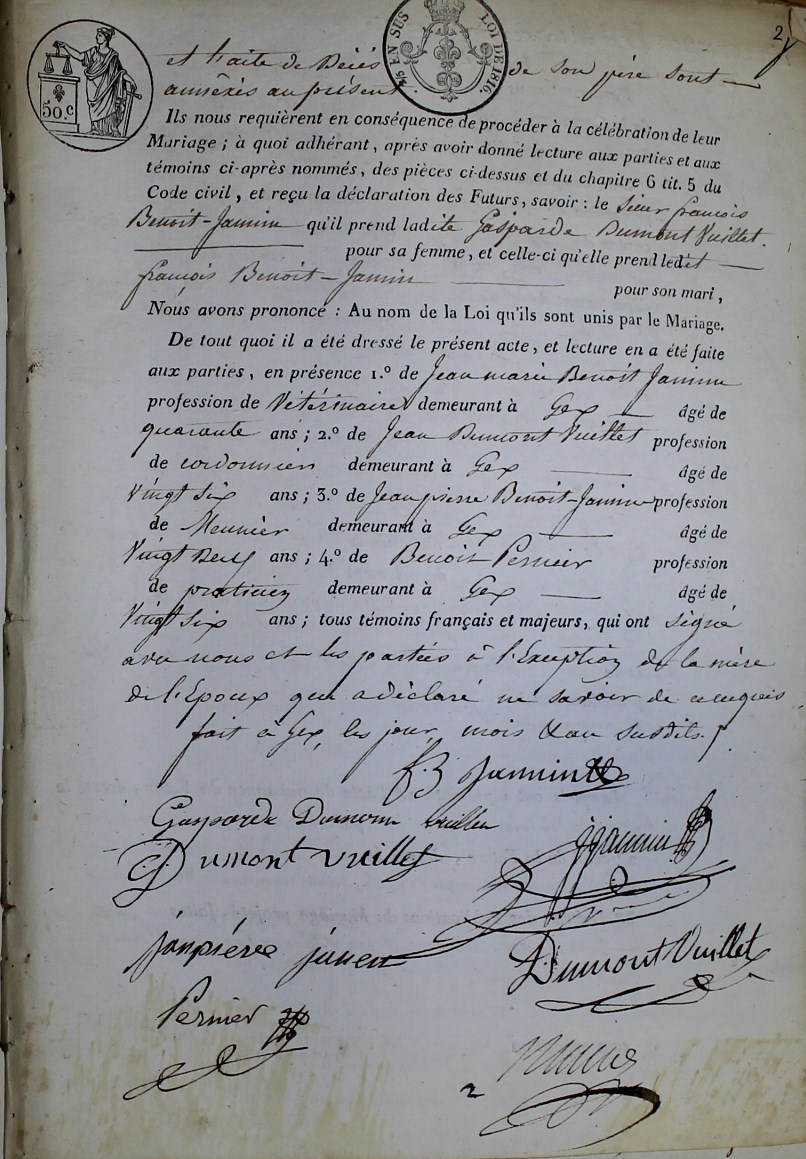 2
50.c
EN SUS LOI DE 1816
et traite de Décès de son père sont
annêxés au présent
Ils nous requièrent en conséquence de procéder à la célébration de leur
Mariage ; à quoi adhérant, après avoir donné lecture aux parties et aux
témoins ci-après nommés, des pièces ci-dessus et du chapitre 6 tit. 5 du
Code civil, et reçu la déclaration des Futurs, savoir : le Sieur françois
Benoit-Jamin qu'il prend ladite Gasparde Dumont Vuillet.
pour sa femme, et celle-ci qu'elle prend ledit
françois Benoit-Jamin
pour son mari,
Nous avons prononcé : Au nom de la Loi qu'ils sont unis par le Mariage.
De tout quoi il a été dressé le présent acte, et lecture en a été faite
aux parties, en présence 1.º de Jean marie Benoit Jamin
profession de Vétérinaire demeurant à Gex âgé de
quarante ans ; 2.º de Jean Dumont Vuillet profession
de cordonnier demeurant à Gex âgé de
Vingt Six ans ; 3.º de Jean pierre Benoit-Jamin profession
de Meunier demeurant à Gex âgé de
Vingt Deux ans ; 4.º de Benoit Pernier profession
de praticien demeurant à Gex âgé de
Vingt Six ans ; tous témoins français et majeurs, qui ont Signé
avec nous et les parties à l'Exception de la mère
de l'Epoux qui a déclaré ne savoir de ce enquis
fait à Gex, les jour, mois & an susdits.
f. B Jamin
Gasparde Dumon vuillet
Dumont vuillet
jjamin
janpiére jamen
Dumont Vuillet
Pernier
2